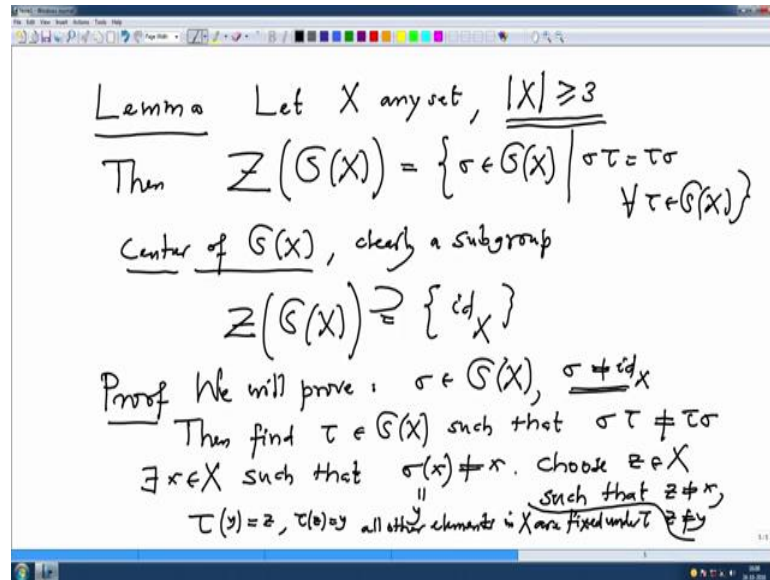 Note1 - Windows Journal
File Edit View Insert Actions Tools Help
Page Width
Lemma Let X any set, |X| ≥ 3
Then Z(𝔖(X)) = {σ ∈ 𝔖(X) | στ = τσ
∀ τ ∈ 𝔖(X)}
Center of 𝔖(X), clearly a subgroup
Z(𝔖(X)) ⊇ {id_X}
Proof We will prove: σ ∈ 𝔖(X), σ ≠ id_X
Then find τ ∈ 𝔖(X) such that στ ≠ τσ
∃ x ∈ X such that σ(x) ≠ x. Choose z ∈ X
"
y
such that z ≠ x,
τ(y) = z, τ(z) = y all other elements in X are fixed under τ z ≠ y